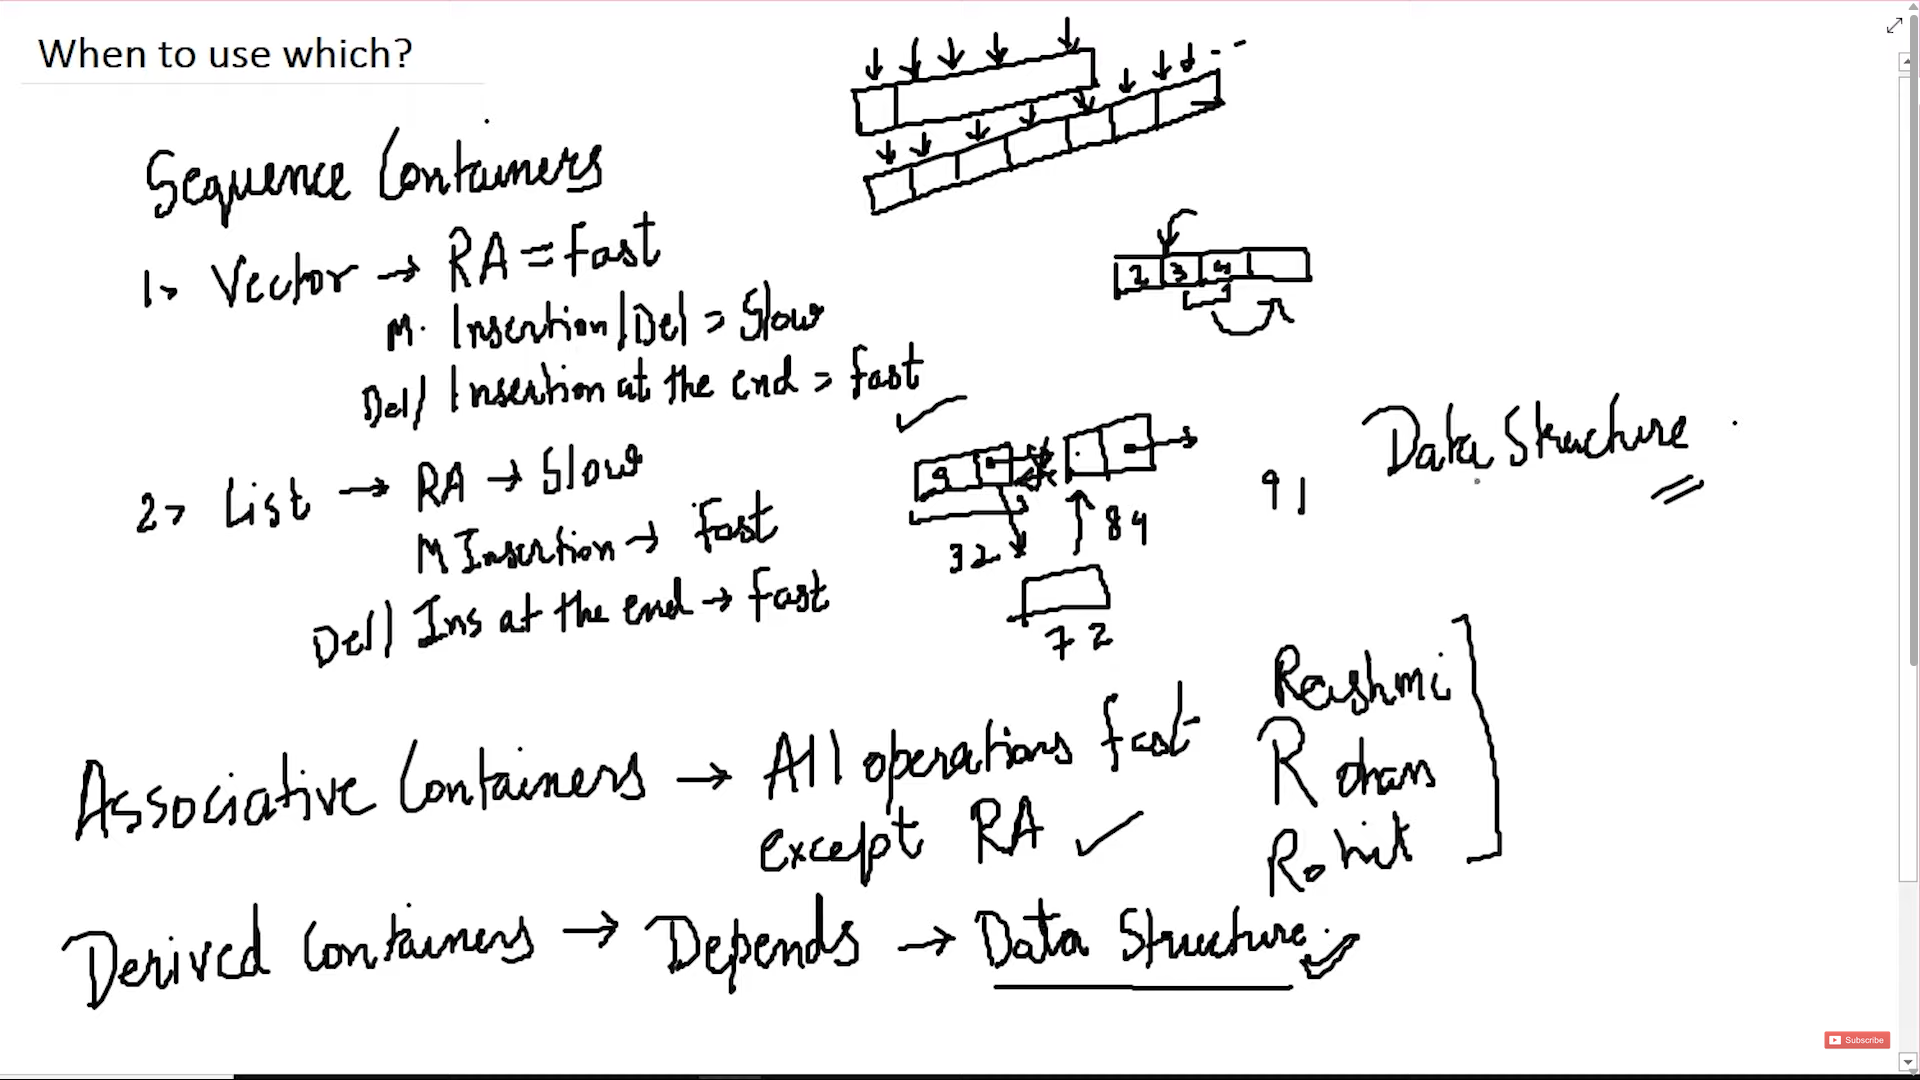 When to use which?
Sequence Containers
1> Vector → RA = fast
M. Insertion/Del = Slow
Del/ Insertion at the end = fast
2> List → RA → Slow
M Insertion → fast
Del/ Ins at the end → fast
2 3 4
9
32
84
72
91
Data Structure
Rashmi
Rohan
Rohit
Associative Containers → All operations fast
except RA ✓
Derived Containers → Depends → Data Structure
Subscribe